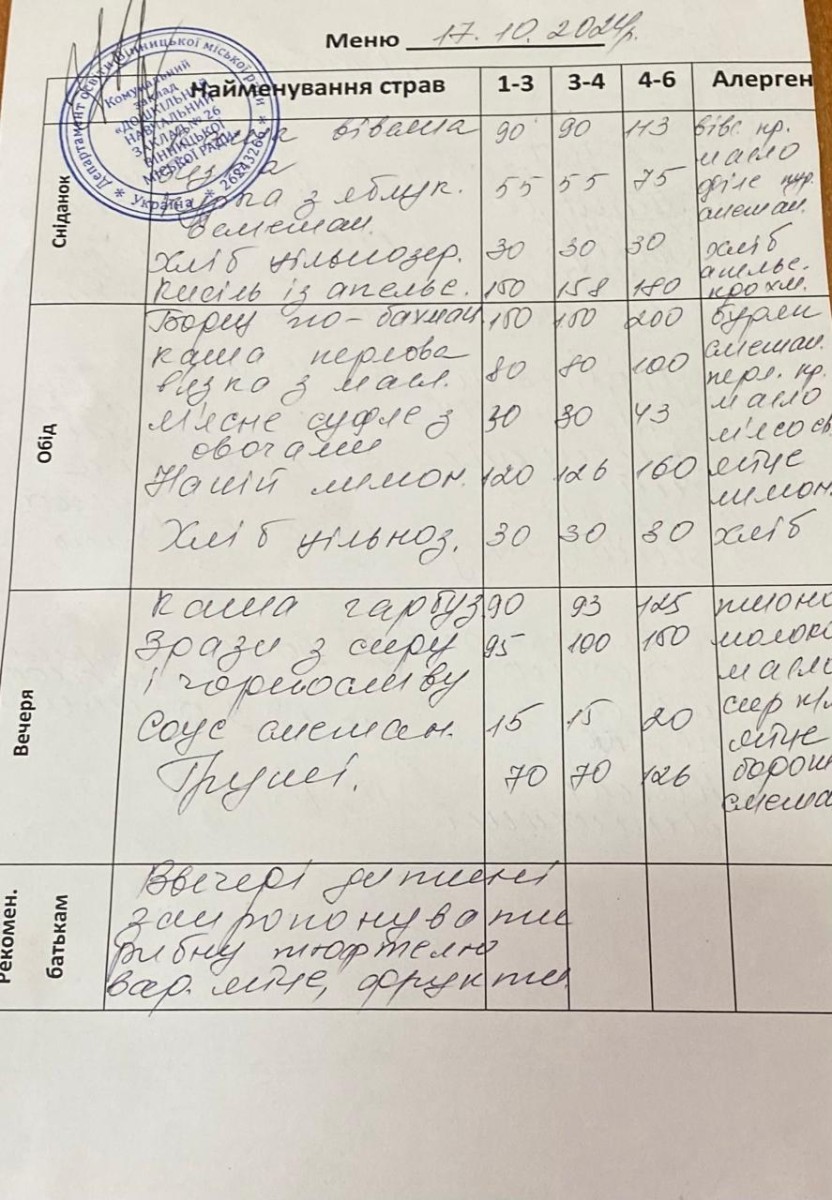 Меню 17.10.2024р.
Найменування страв 1-3 3-4 4-6 Алерген
Департамент освіти Вінницької міської ради
Комунальний
заклад
«ДОШКІЛЬНИЙ
НАВЧАЛЬНИЙ
ЗАКЛАД № 26
ВІННИЦЬКОЇ
МІСЬКОЇ РАДИ»
* Україна * 26243266 *
Сніданок
вівсяна 90 90 113 вівс. кр.
масло
з яблук. 55 55 75 філе кур.
в сметан. сметан.
Хліб цільнозер. 30 30 30 хліб
апельс.
Кисіль із апельс. 150 158 180 крохм.
Обід
Борщ по-бахмац. 150 150 200 буряк
сметан.
Каша перлова
в'язка з масл. 80 80 100 перл. кр.
масло
М'ясне суфле з 30 30 43 м'ясо св.
овочами
Напій лимон. 120 126 160 яйце
лимон.
Хліб цільноз. 30 30 30 хліб
Вечеря
Каша гарбуз 90 93 125 пшоно
Зрази з сиру 95 100 150 молоко
і чорносливу масло
сир к/м
Соус сметан. 15 15 20 яйце
Груші. 70 70 126 борош
смета
Рекомен.
батькам
Ввечері дитині
запропонувати
рибну тюфтелю
вар. яйце, фрукти.